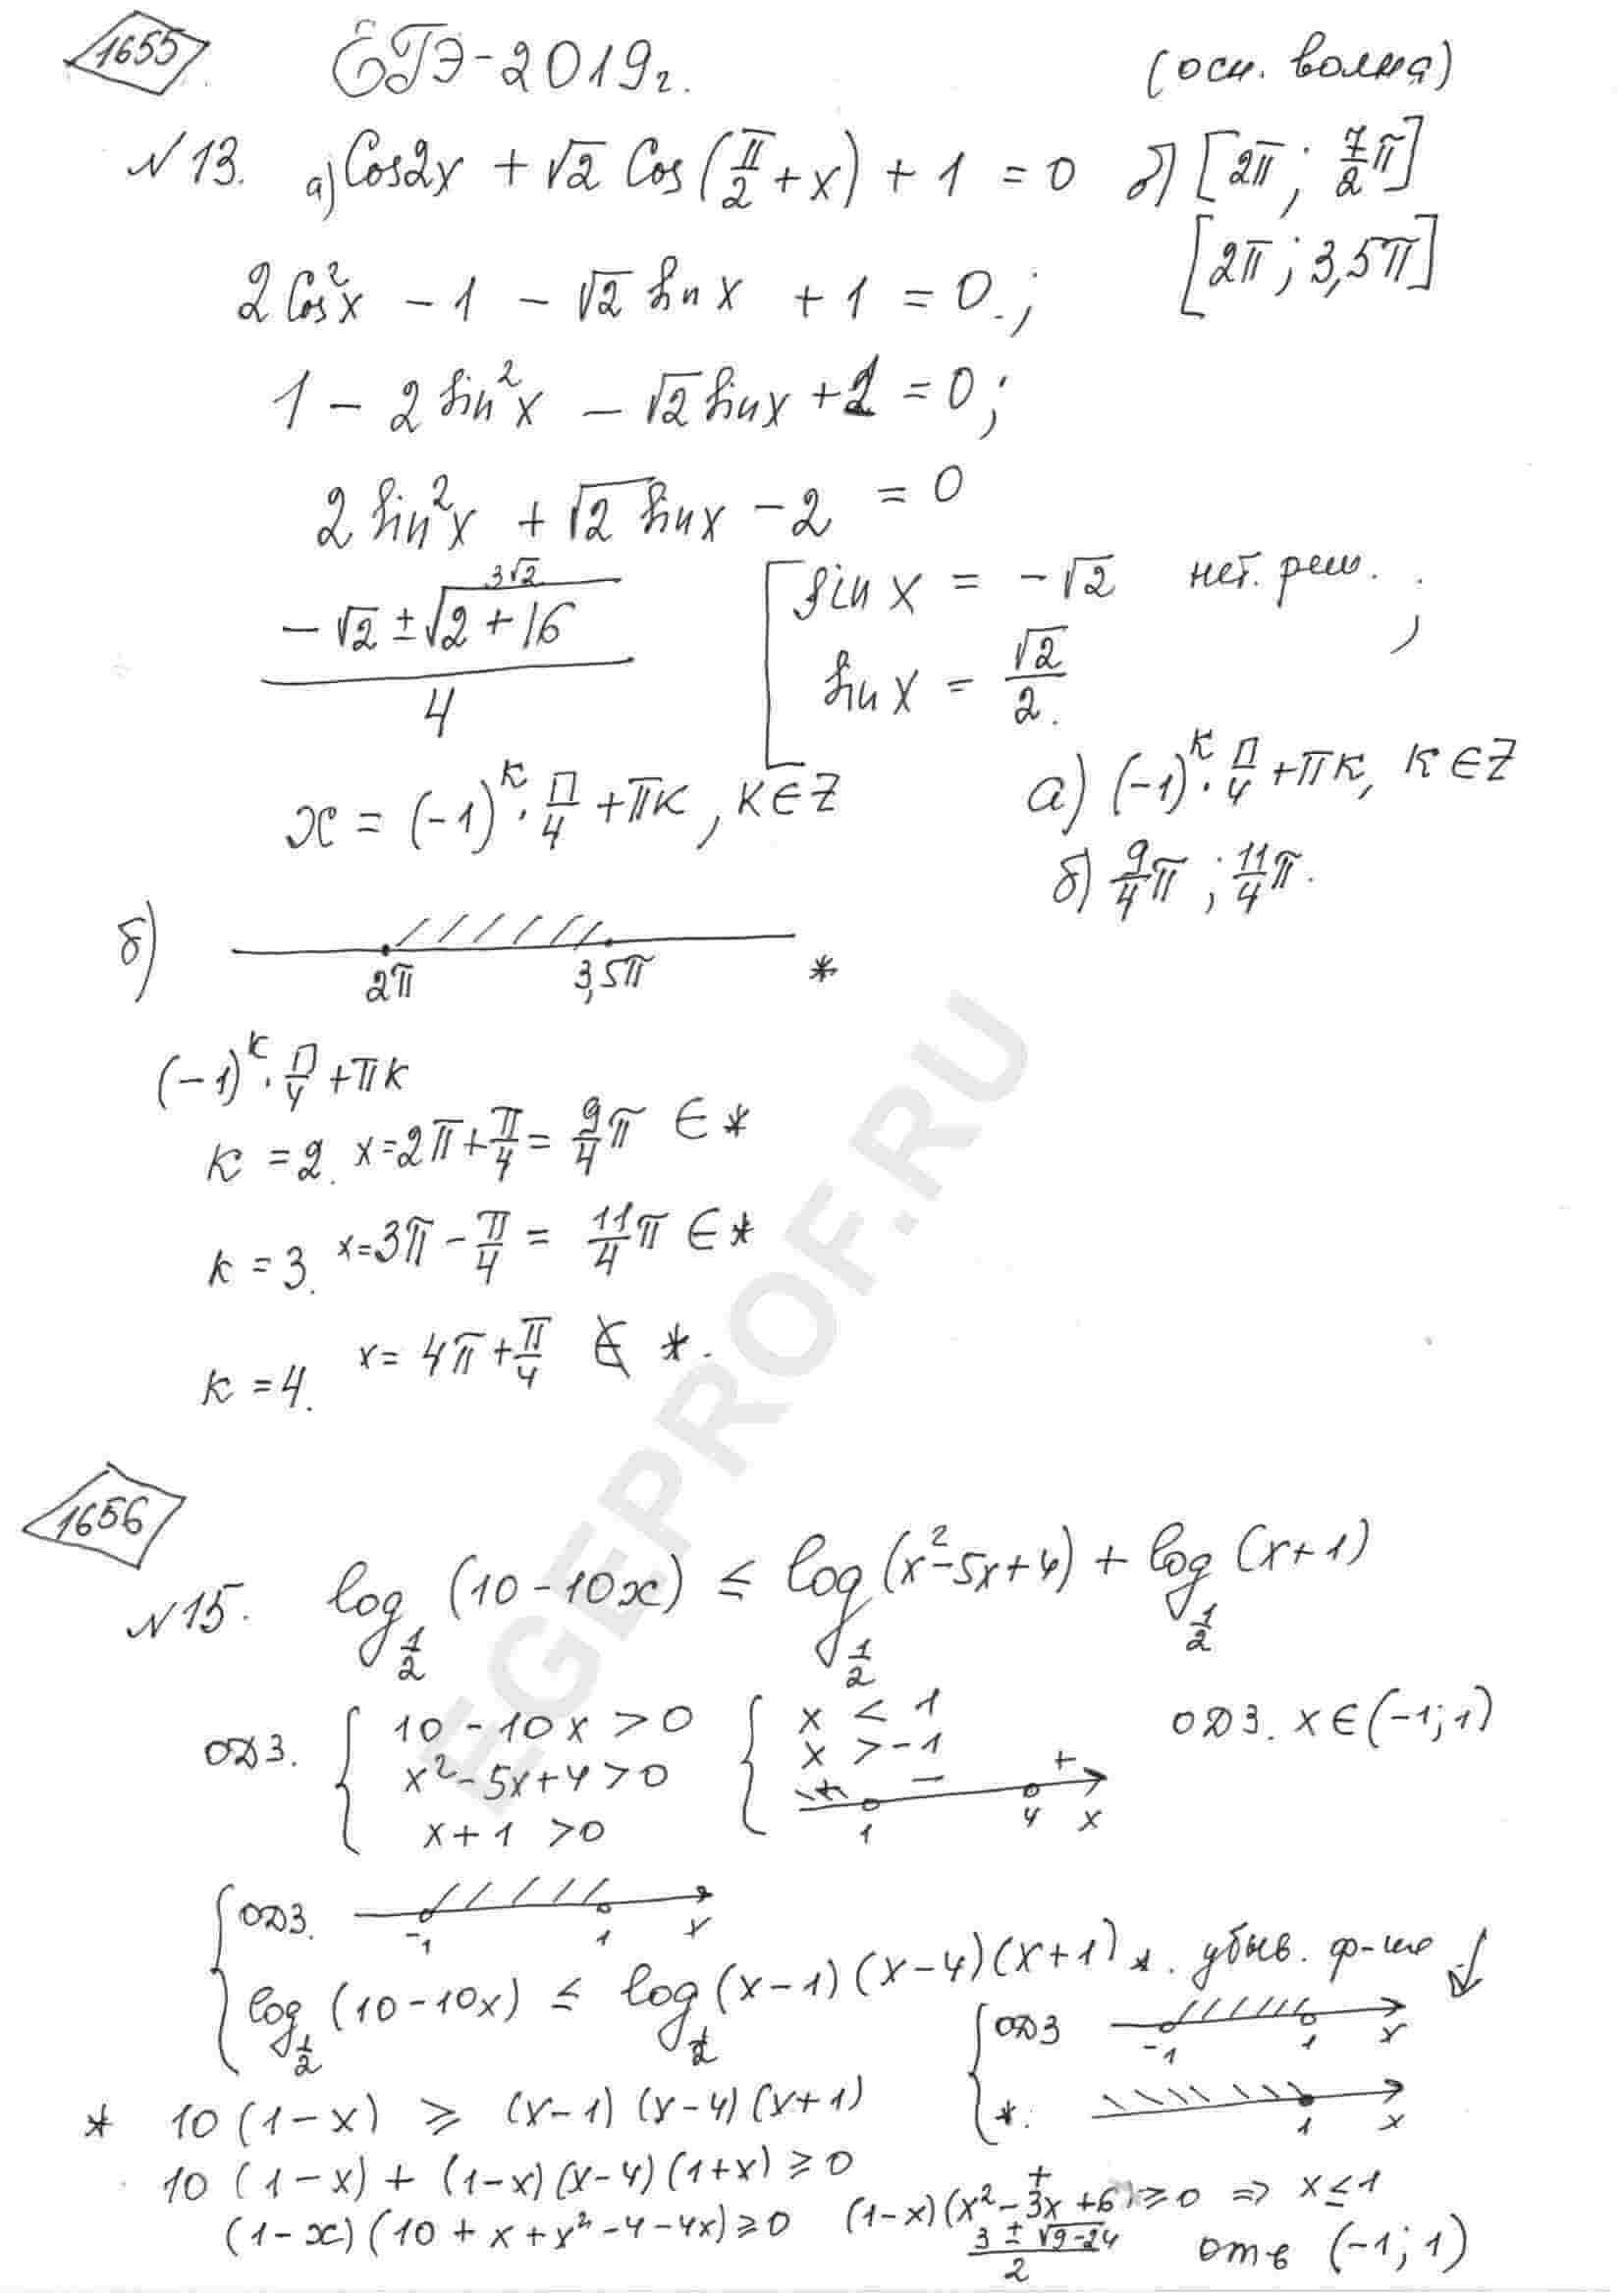 1655 ЕГЭ-2019г. (осн. волна)
№13. а) Cos2x + √2 Cos(π/2 + x) + 1 = 0 б) [2π; 7/2 π]
[2π; 3,5π]
2Cos²x - 1 - √2 sin x + 1 = 0.;
1 - 2 sin²x - √2 sin x + 1 = 0;
2 sin²x + √2 sin x - 2 = 0
3√2
(-√2 ± √(2 + 16))/4
[ sin x = -√2 нет. реш. ;
sin x = √2/2.
x = (-1)^k · π/4 + πk, k ∈ Z
а) (-1)^k · π/4 + πk, k ∈ Z
б) 9/4 π; 11/4 π.
б) 2π 3,5π *
(-1)^k · π/4 + πk
k = 2. x = 2π + π/4 = 9/4 π ∈ *
k = 3. x = 3π - π/4 = 11/4 π ∈ *
k = 4. x = 4π + π/4 ∉ *.
1656
№15. log_1/2 (10 - 10x) ≤ log_1/2 (x² - 5x + 4) + log_1/2 (x + 1)
ОДЗ. { 10 - 10x > 0
x² - 5x + 4 > 0
x + 1 > 0
{ x < 1
x > -1
+ - +
1 4 x
ОДЗ. x ∈ (-1; 1)
{ ОДЗ. -1 1 x
log_1/2 (10 - 10x) ≤ log_1/2 (x - 1)(x - 4)(x + 1) *. убыв. ф-ие ↓
{ ОДЗ -1 1 x
*. 1 x
* 10(1 - x) ≥ (x - 1)(x - 4)(x + 1)
10(1 - x) + (1 - x)(x - 4)(1 + x) ≥ 0
(1 - x)(10 + x + x² - 4 - 4x) ≥ 0
+
(1 - x)(x² - 3x + 6) ≥ 0 ⇒ x ≤ 1
(3 ± √(9 - 24))/2
отв (-1; 1)
EGEPROF.RU